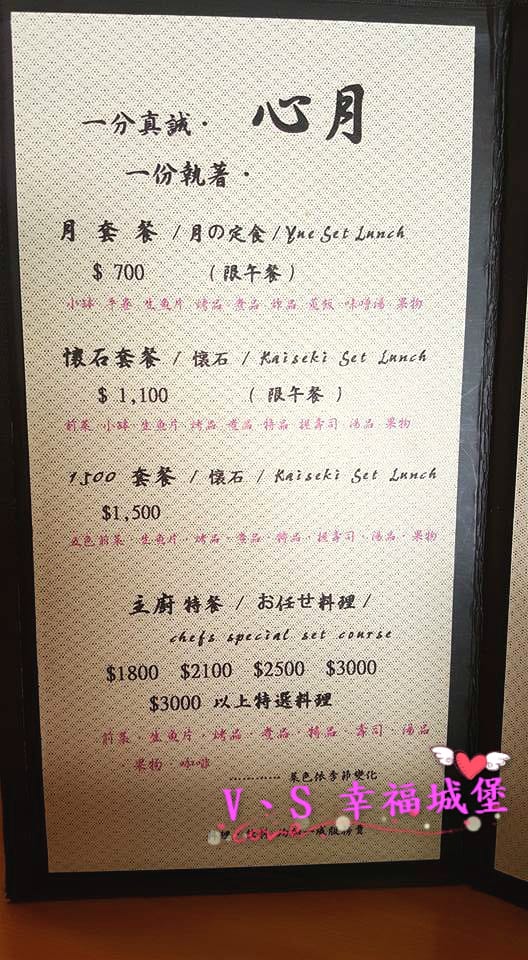 一分真誠・ 心月
一份執著・
月套餐 / 月の定食 / Yue Set Lunch
$ 700 （限午餐）
小缽・手卷・生魚片・烤品・煮品・炸品・蒸飯・味噌湯・果物
懷石套餐 / 懷石 / Kaiseki Set Lunch
$ 1,100 （限午餐）
前菜・小缽・生魚片・烤品・煮品・特品・握壽司・湯品・果物
1500 套餐 / 懷石 / Kaiseki Set Lunch
$1,500
五色前菜・生魚片・烤品・煮品・特品・握壽司・湯品・果物
主廚特餐 / お任せ料理 /
chefs special set course
$1800 $2100 $2500 $3000
$3000 以上特選料理
前菜・生魚片・烤品・煮品・特品・壽司・湯品
・果物・咖啡
............ 菜色依季節變化
V、S 幸福城堡
一成服務費